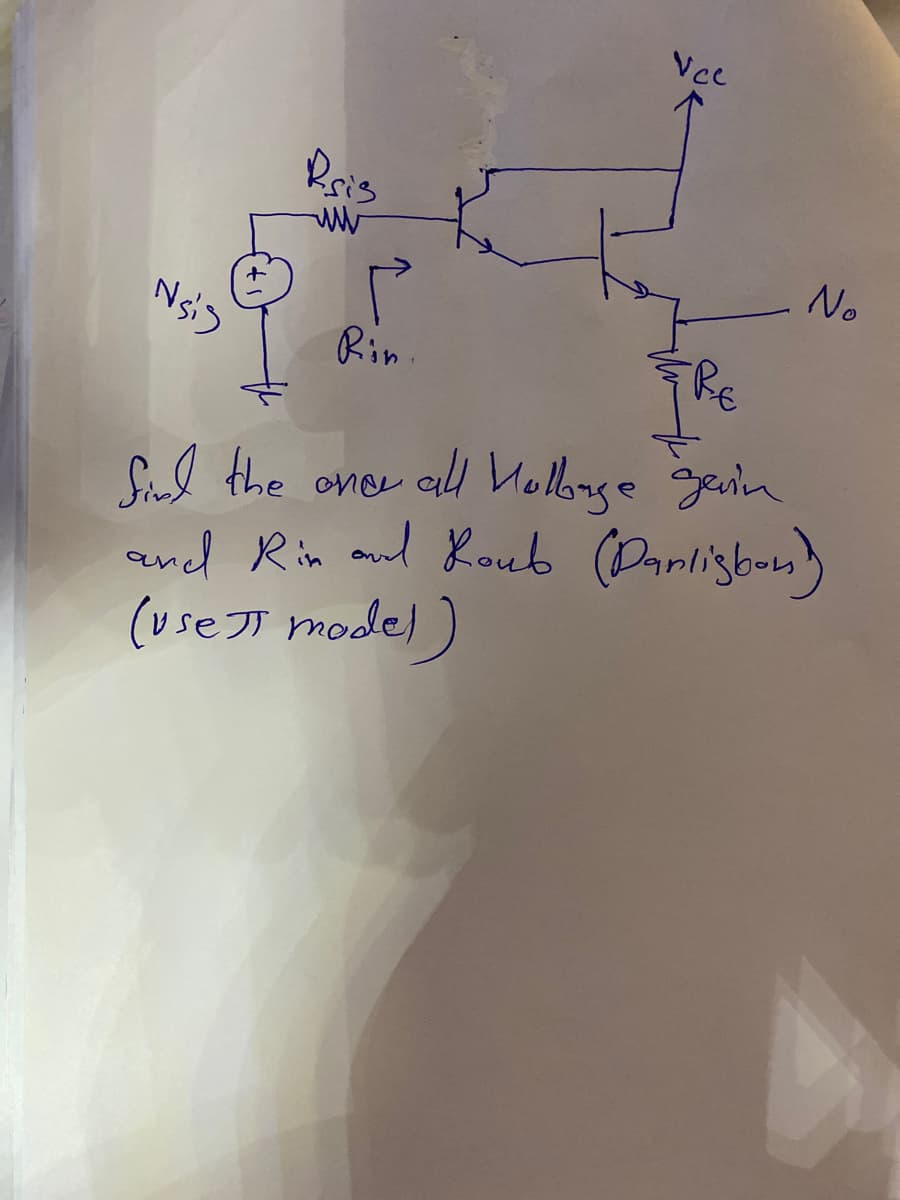 Vcc
Rsig
+
-
Vsig
Rin
Vo
RE
find the over all Voltage gain
and Rin and Rout (Darligton)
(use π model)